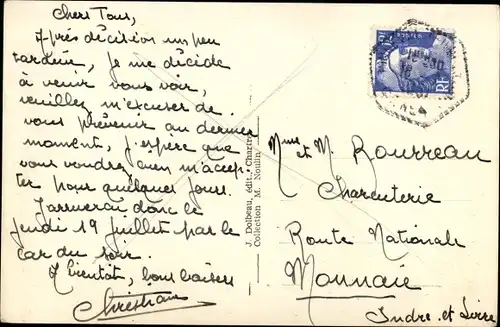 Chers Tous,
Après décision un peu
tardive, je me décide
à venir vous voir,
veuillez m'excuser de
vous prévenir au dernier
moment, j'espère que
vous voudrez bien m'accep
ter pour quelques jours.
J'arriverai donc le
jeudi 19 juillet par le
car du soir.
A bientôt, bons baisers
Christiane
J. Dolbeau, édit., Chartres
Collection M. Noulin
RF
Mme et M. Bourreau
Charcuterie
Route Nationale
Monnaie
Indre et Loire